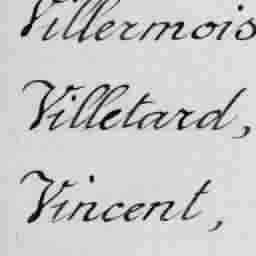 Villermois
Villetard,
Vincent,